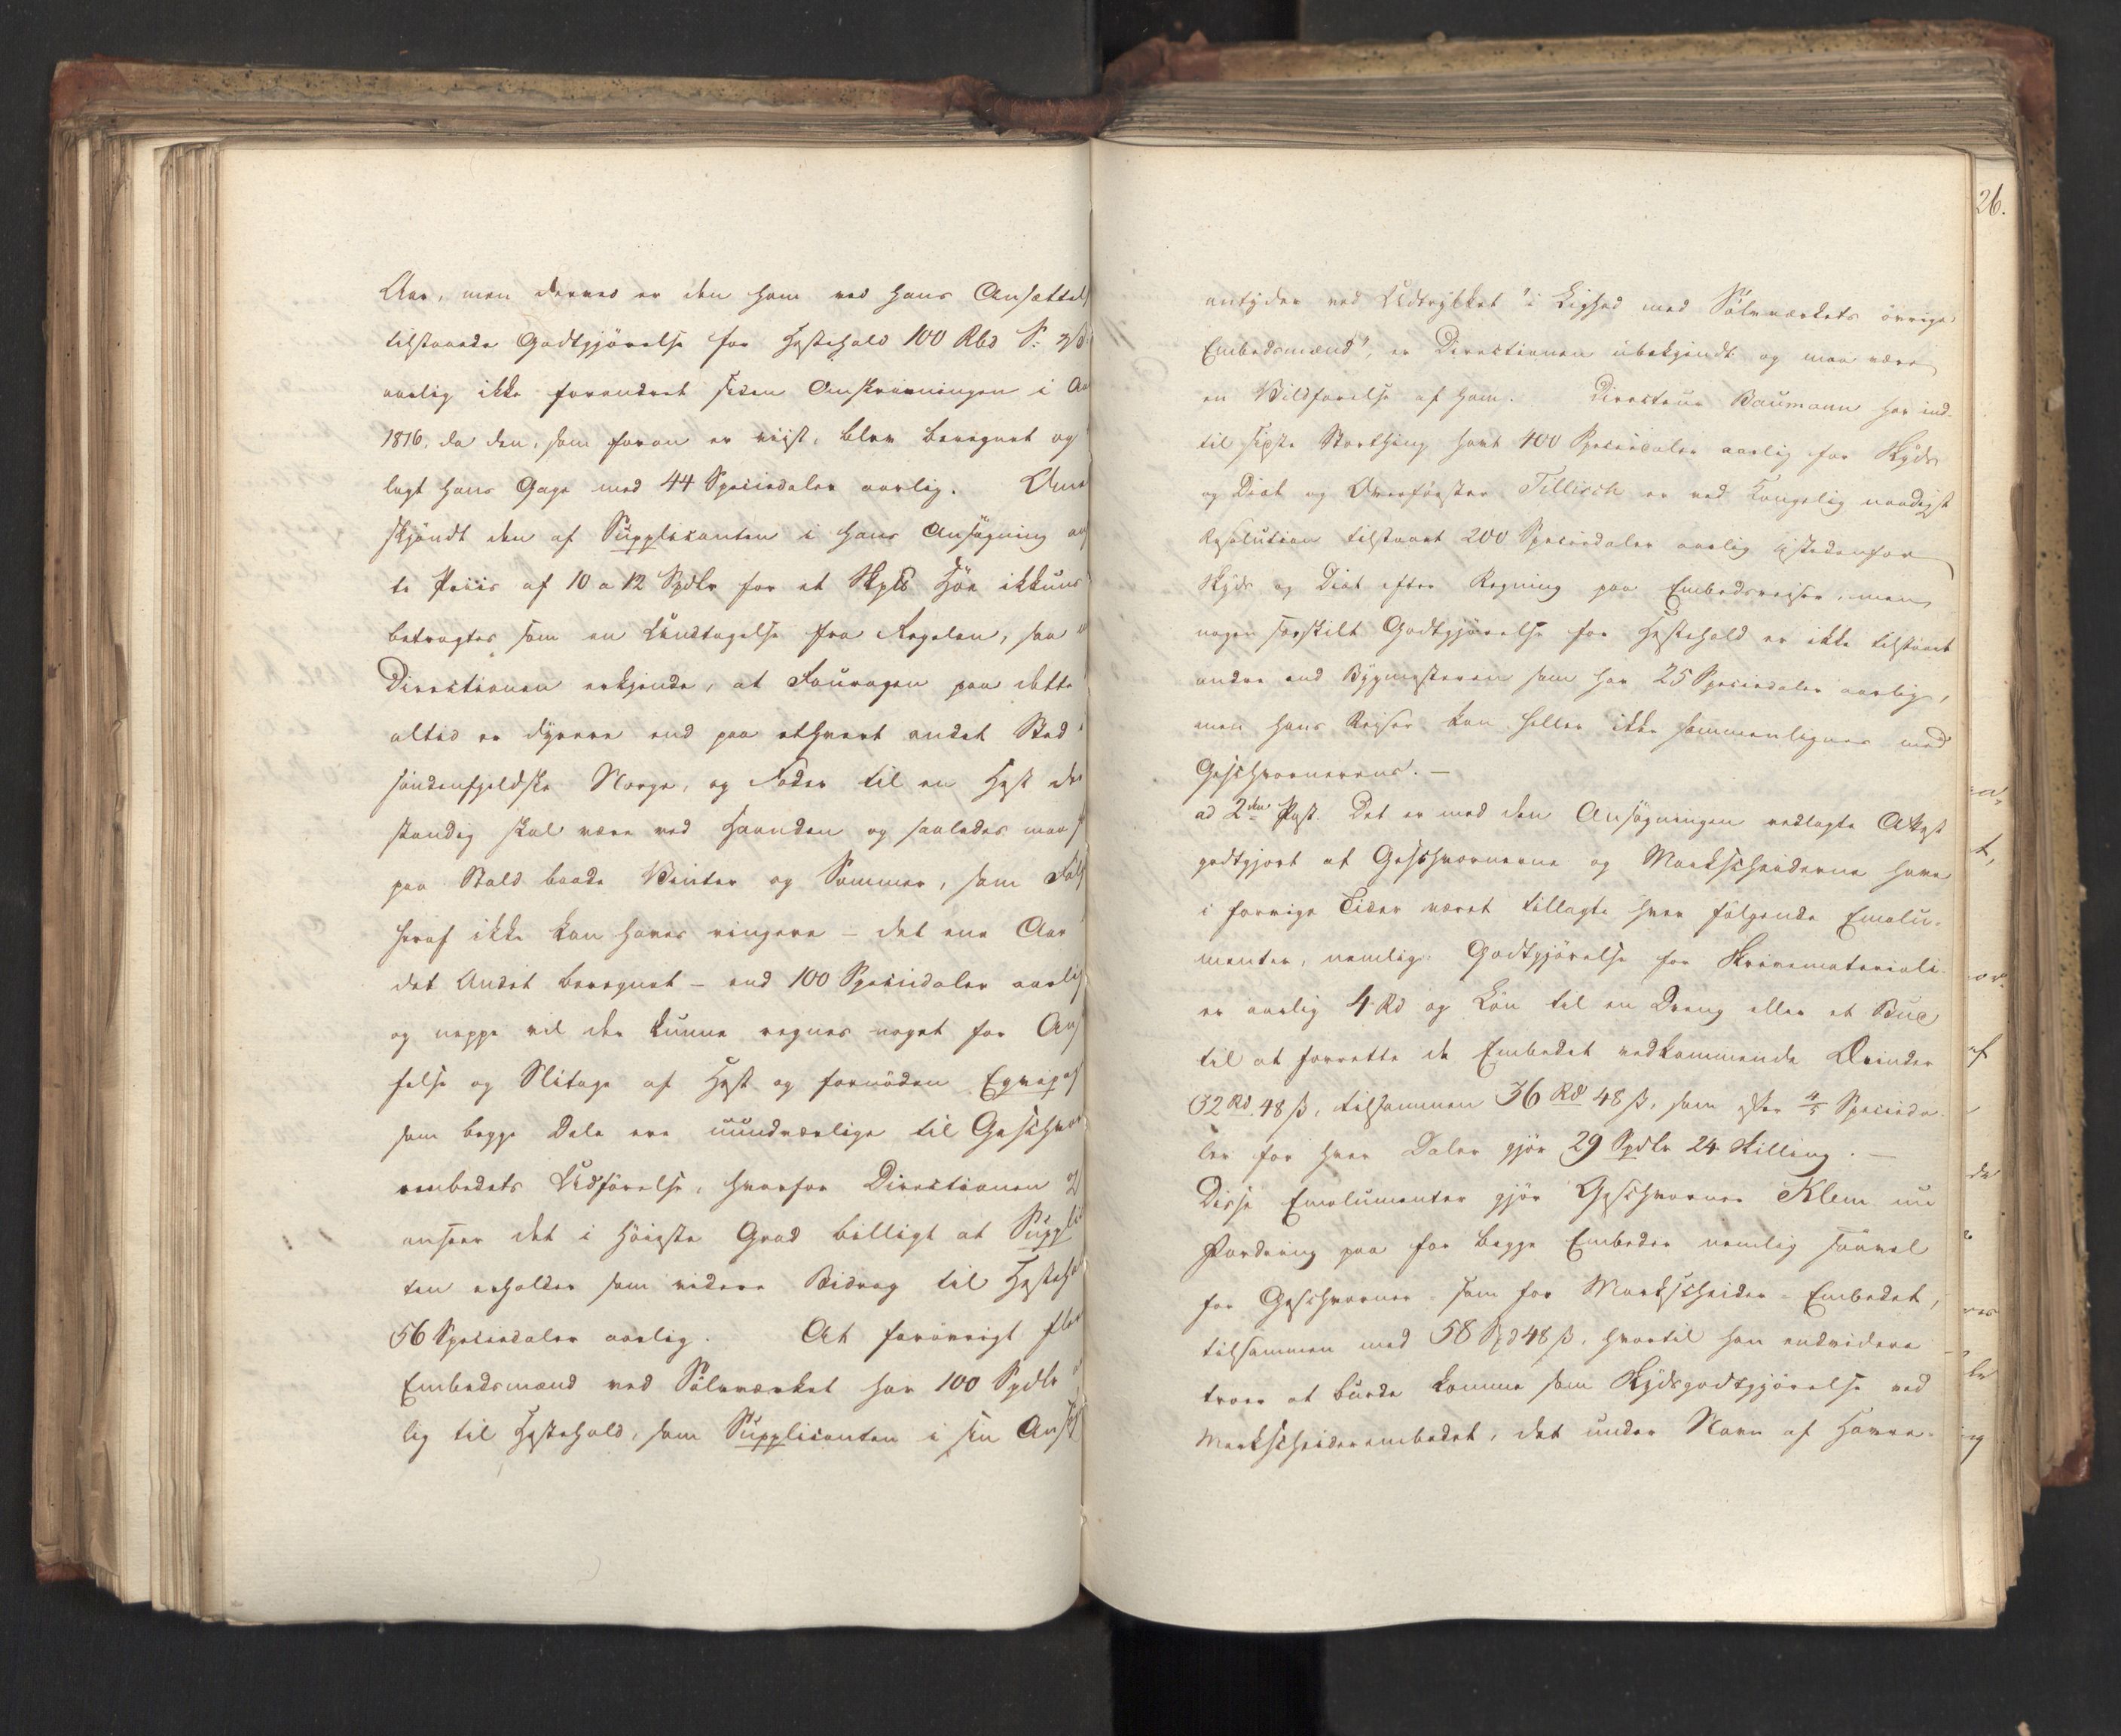 Aar, men derved er den ham ved hans Ansættels
tilstaaede Godtgjörelse for Hestehold 100 Rbd S.
aarlig ikke forandret siden Omskrivningen i Aa
1816, da den, som foran er viist, blev beregnet og
lagt hans Gage med 44 Speciedaler aarlig.
skjöndt den af Supplicanten i hans Ansögning
te Priis af 10 a 12 Spdlr for et Skpd Höe ikkuns
betragtes som en Undtagelse fra Regelen, saa
Directionen erkjende, at Fouragen paa dette
altid er dyrere end paa ethvert andet Sted
söndenfjeldske Norge, og Foder til en Hest der
standig skal være ved Haanden og saaledes maa
paa Stald baade Vinter og Sommer, som Föl
heraf ikke kan haves ringere - det ene Aar
det Andet beregnet - end 100 Speciedaler aarlig
og neppe vil der kunne regnes noget for Ans
felse og Slitage af Hest og fornöden Eqvipa
som begge Dele ere uundværlige til Geschwor
rembedets Udförelse, hvorfor Directionen og
anseer det i höieste Grad billigt at Suppli
ten erholder som videre Bidrag til Hesteho
56 Speciedaler aarlig. At forövrigt fler
Embedsmænd ved Sölvværket har 100 Spdlr
lig til Hestehold, som Supplicanten i sin Ansög
26.
antyder ved Udtrykket "i Liighed med Sölvværkets övrige
Embedsmænd", er Directionen ubekjendt og maa være
en Vildfarelse af ham. Directeur Baumann har ind-
til sidste Storthing havt 400 Speciedaler aarlig for Skyds
og Diæt og Overförster Tillisch er ved Kongelig naadigst
Resolution tilstaaet 200 Speciedaler aarlig istedenfor
Skyds og Diæt efter Regning paa Embedsreiser, men
nogen særskilt Godtgjörelse for Hestehold er ikke tilstaaet
andre end Bygmesteren som har 25 Speciedaler aarlig,
men hans Reiser kan heller ikke sammenlignes med
Geschwornerens. -
ad 2den Post. Det er med den Ansögningen vedlagte Attest
godtgjort at Geschwornerne og Markscheiderne have
i forrige Tider været tillagte hver fölgende Emolu-
menter, nemlig: Godtgjörelse for Skrivematerieli-
er aarlig 4 Rd og Lön til en Dreng eller et Bud
til at forrette de Embedet vedkommende Ærinder
32 Rd. 48 ß, tilsammen 36 Rd 48 ß, som efter 4/5 Specieda-
ler for hver Daler gjör 29 Spdlr 24 Skilling. -
Disse Emolumenter gjör Geschworner Klem nu
Fordring paa for begge Embeder nemlig saavel
for Geschworner- som for Markscheider-Embedet,
tilsammen med 58 Spd 48 ß, hvortil han endvidere
troer at burde komme som Skydsgodtgjörelse ved
Markscheiderembedet, det under Navn af Havre-